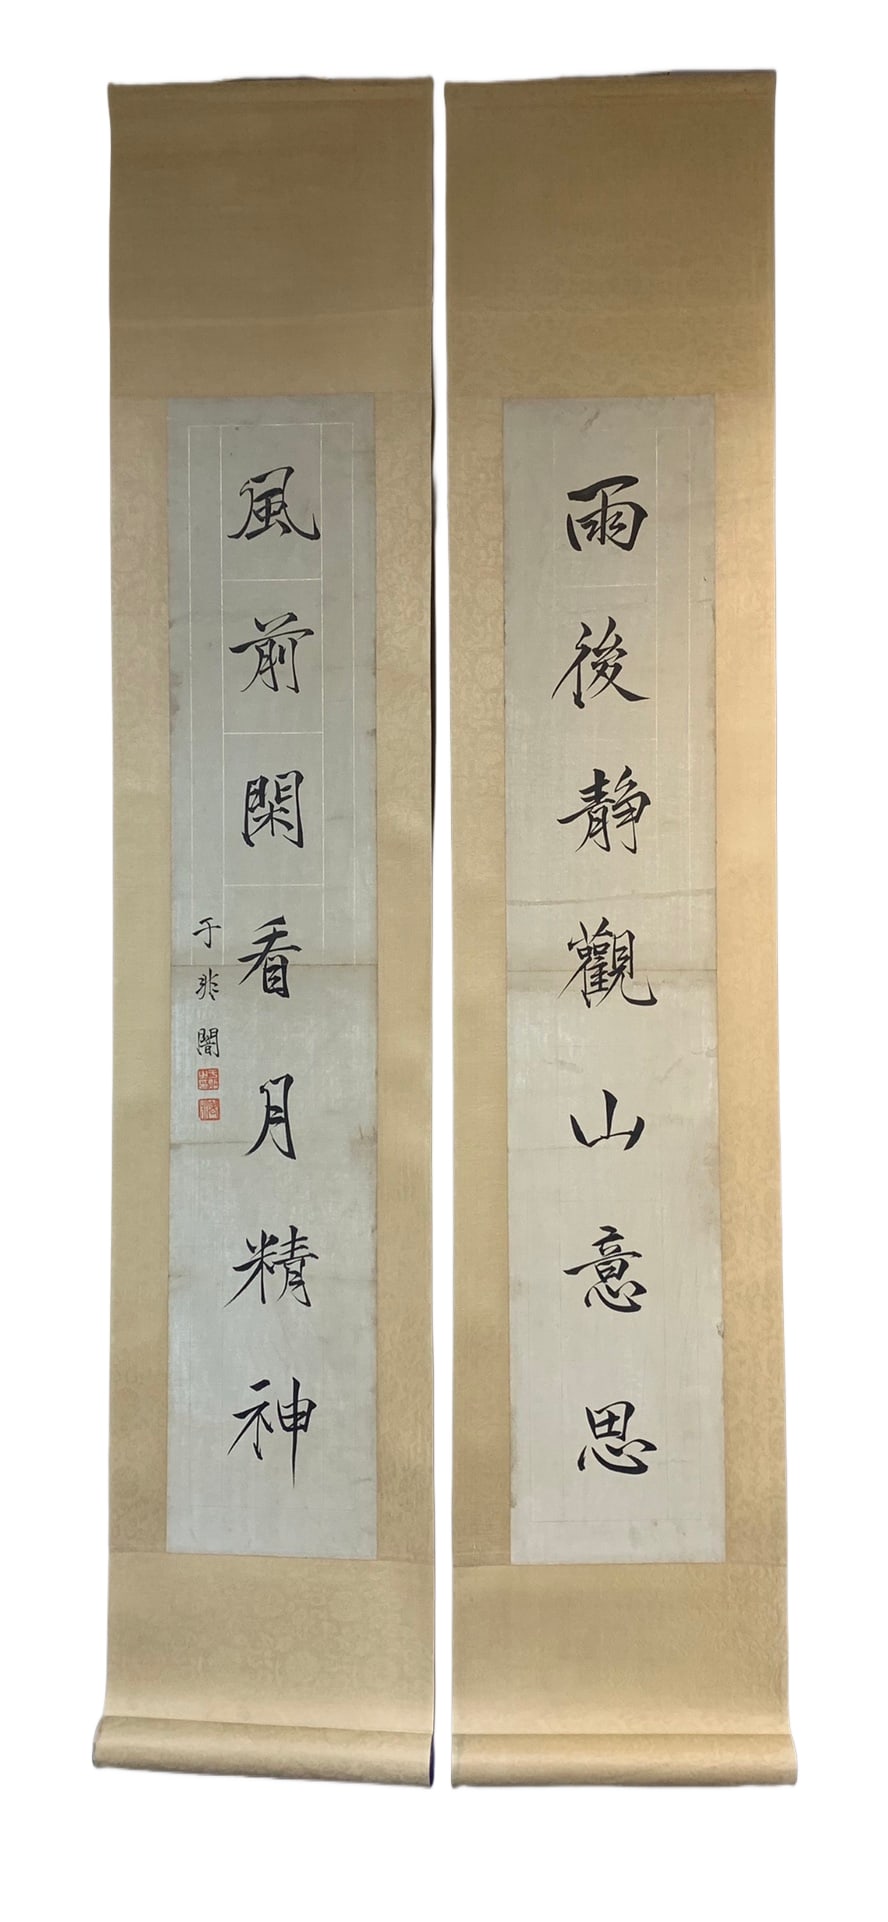 雨後静觀山意思
風前閑看月精神
于非闇